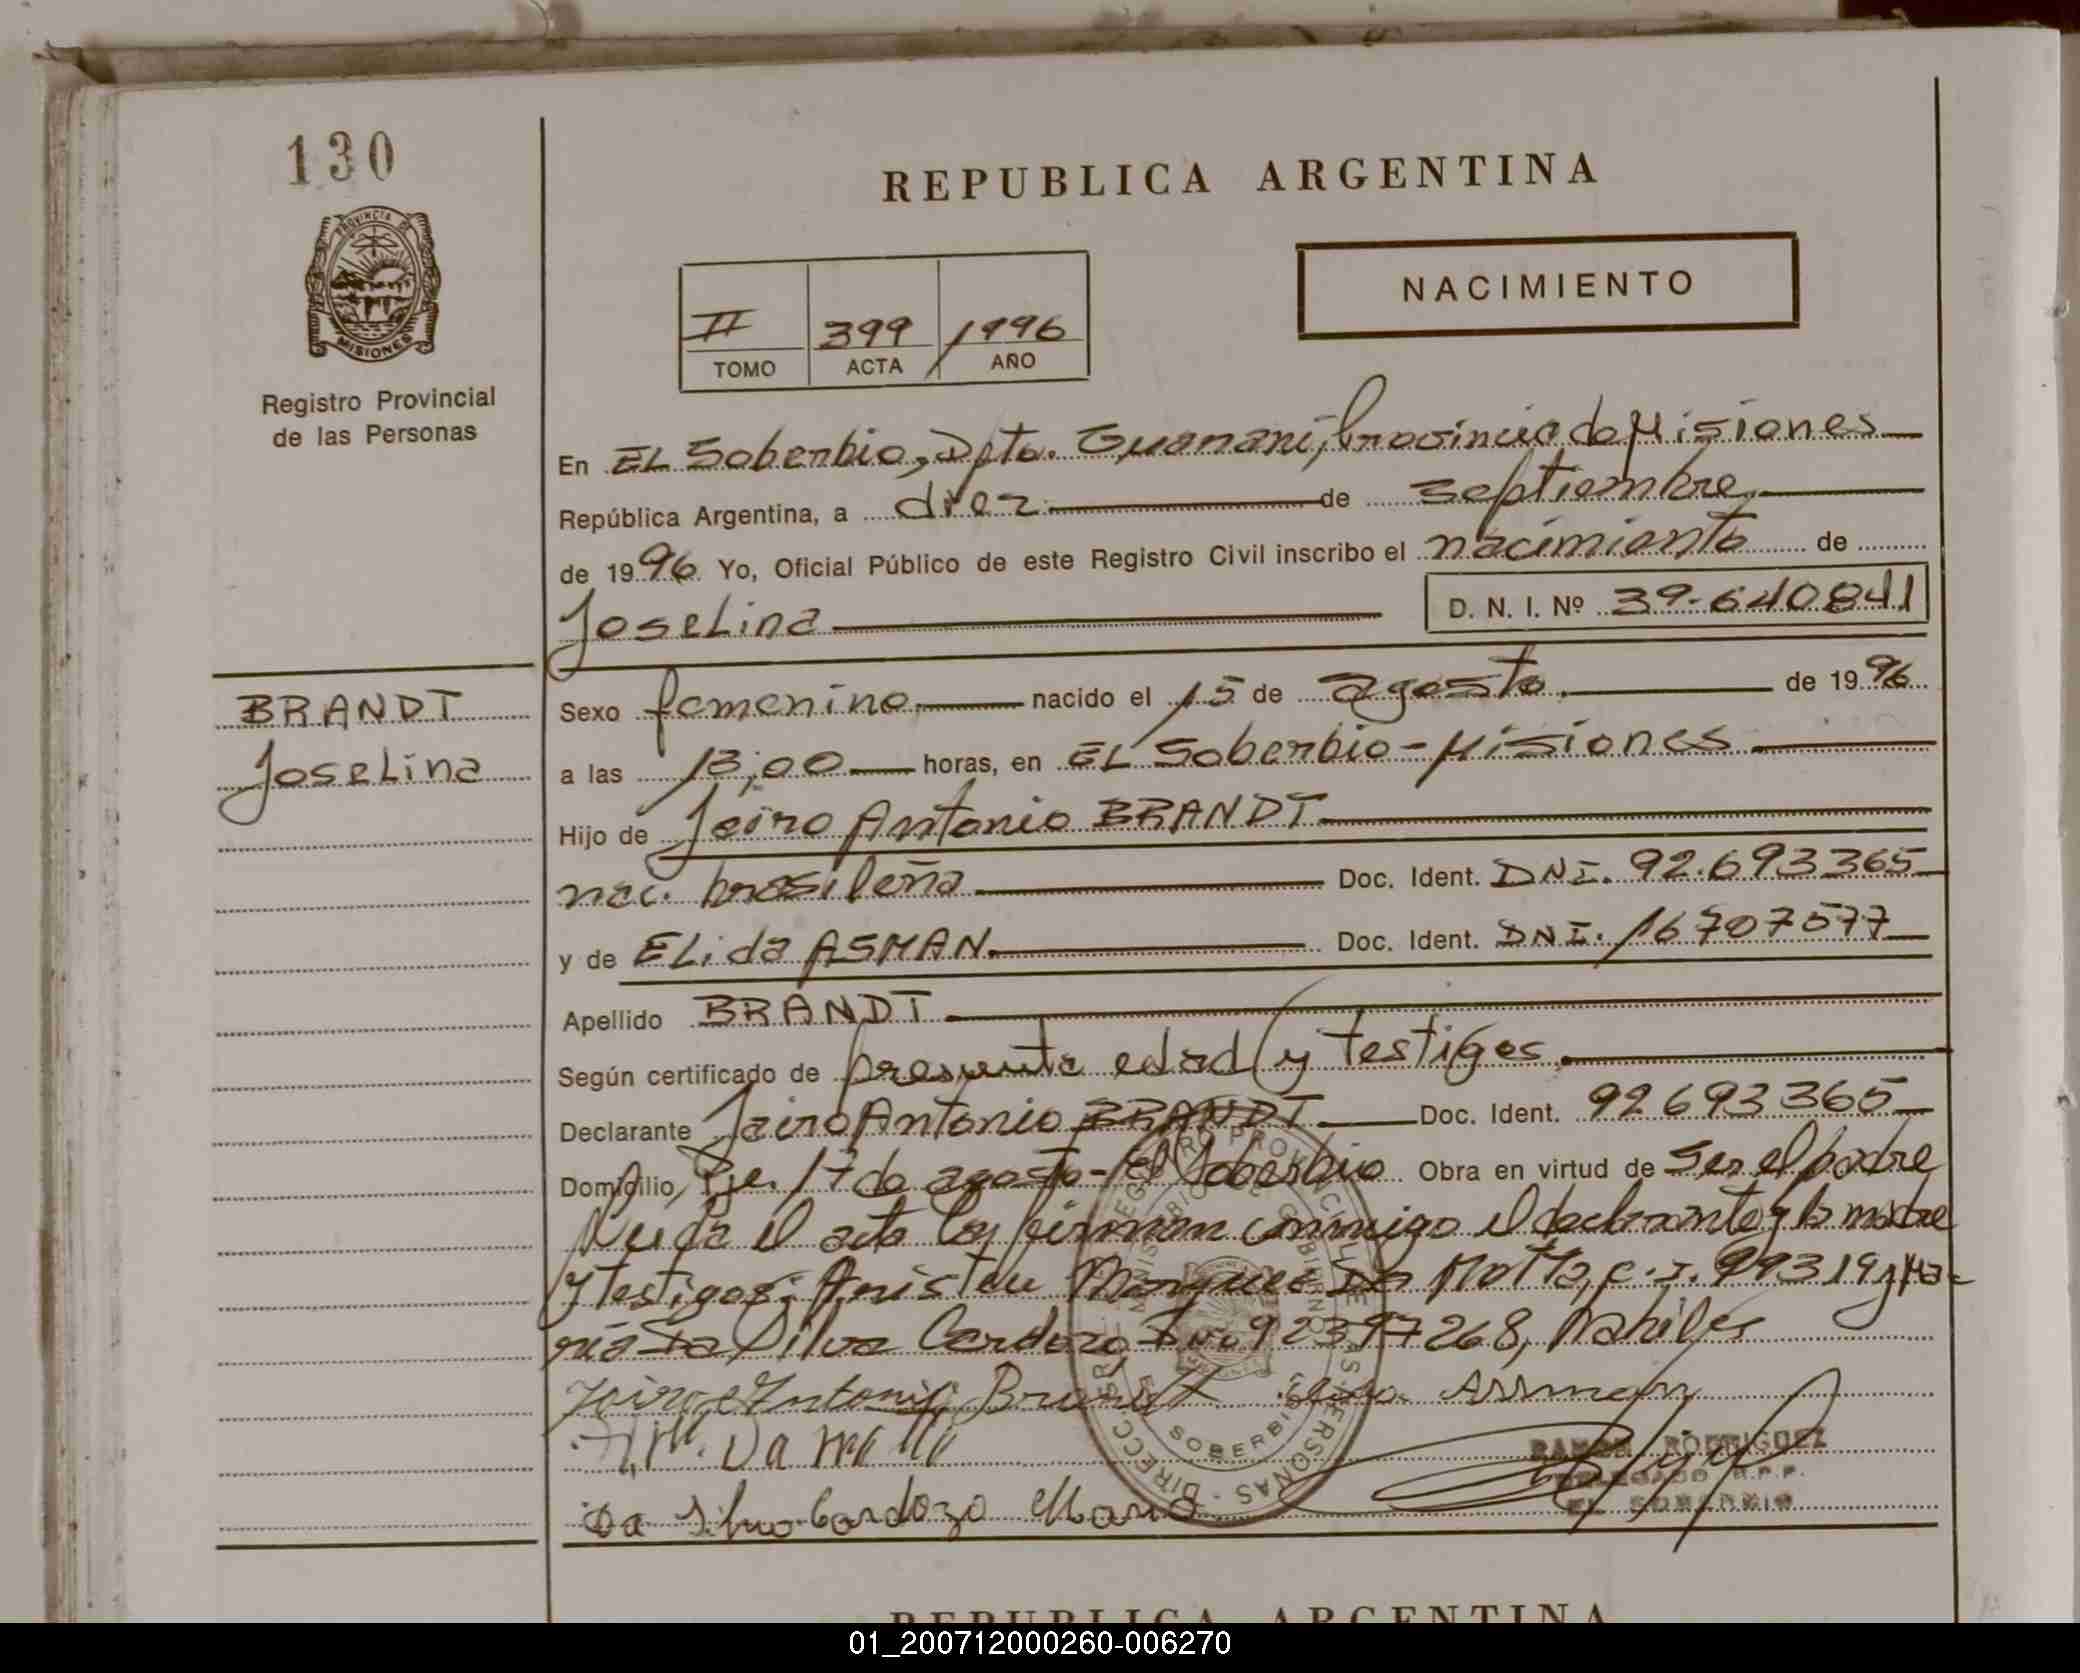 130
REPUBLICA ARGENTINA
PROVINCIA DE
MISIONES
Registro Provincial
de las Personas
NACIMIENTO
II 399 1996
TOMO ACTA AÑO
En EL Soberbio, Dpto. Guaraní, Provincia de Misiones
República Argentina, a diez de septiembre
de 1996 Yo, Oficial Público de este Registro Civil inscribo el nacimiento de
Joselina D. N. I. Nº 39.640841
BRANDT
Joselina
Sexo femenino nacido el 15 de agosto de 1996
a las 13,00 horas, en EL Soberbio - Misiones
Hijo de Jairo Antonio BRANDT
nac. brasileña Doc. Ident. DNI. 92.693365
y de ELida ASMAN Doc. Ident. DNI. 16707577
Apellido BRANDT
Según certificado de presunta edad y testigos
Declarante Jairo Antonio BRANDT Doc. Ident. 92693365
Domicilio Pje. 17 de agosto - El Soberbio Obra en virtud de ser el padre
el acta la firman conmigo el declarante y la madre
y testigos: Aristeu Marques Da Motta, c.i. 99319 y Ma-
ria Da Silva Cardozo DNI 92397268,
Jairo Antonio Brandt Elida Assman
Da Motta
RAMON RODRIGUEZ
DELEGADO R.P.P.
EL SOBERBIO
Da Silva Cardozo Maria
REPUBLICA ARGENTINA
01_200712000260-006270